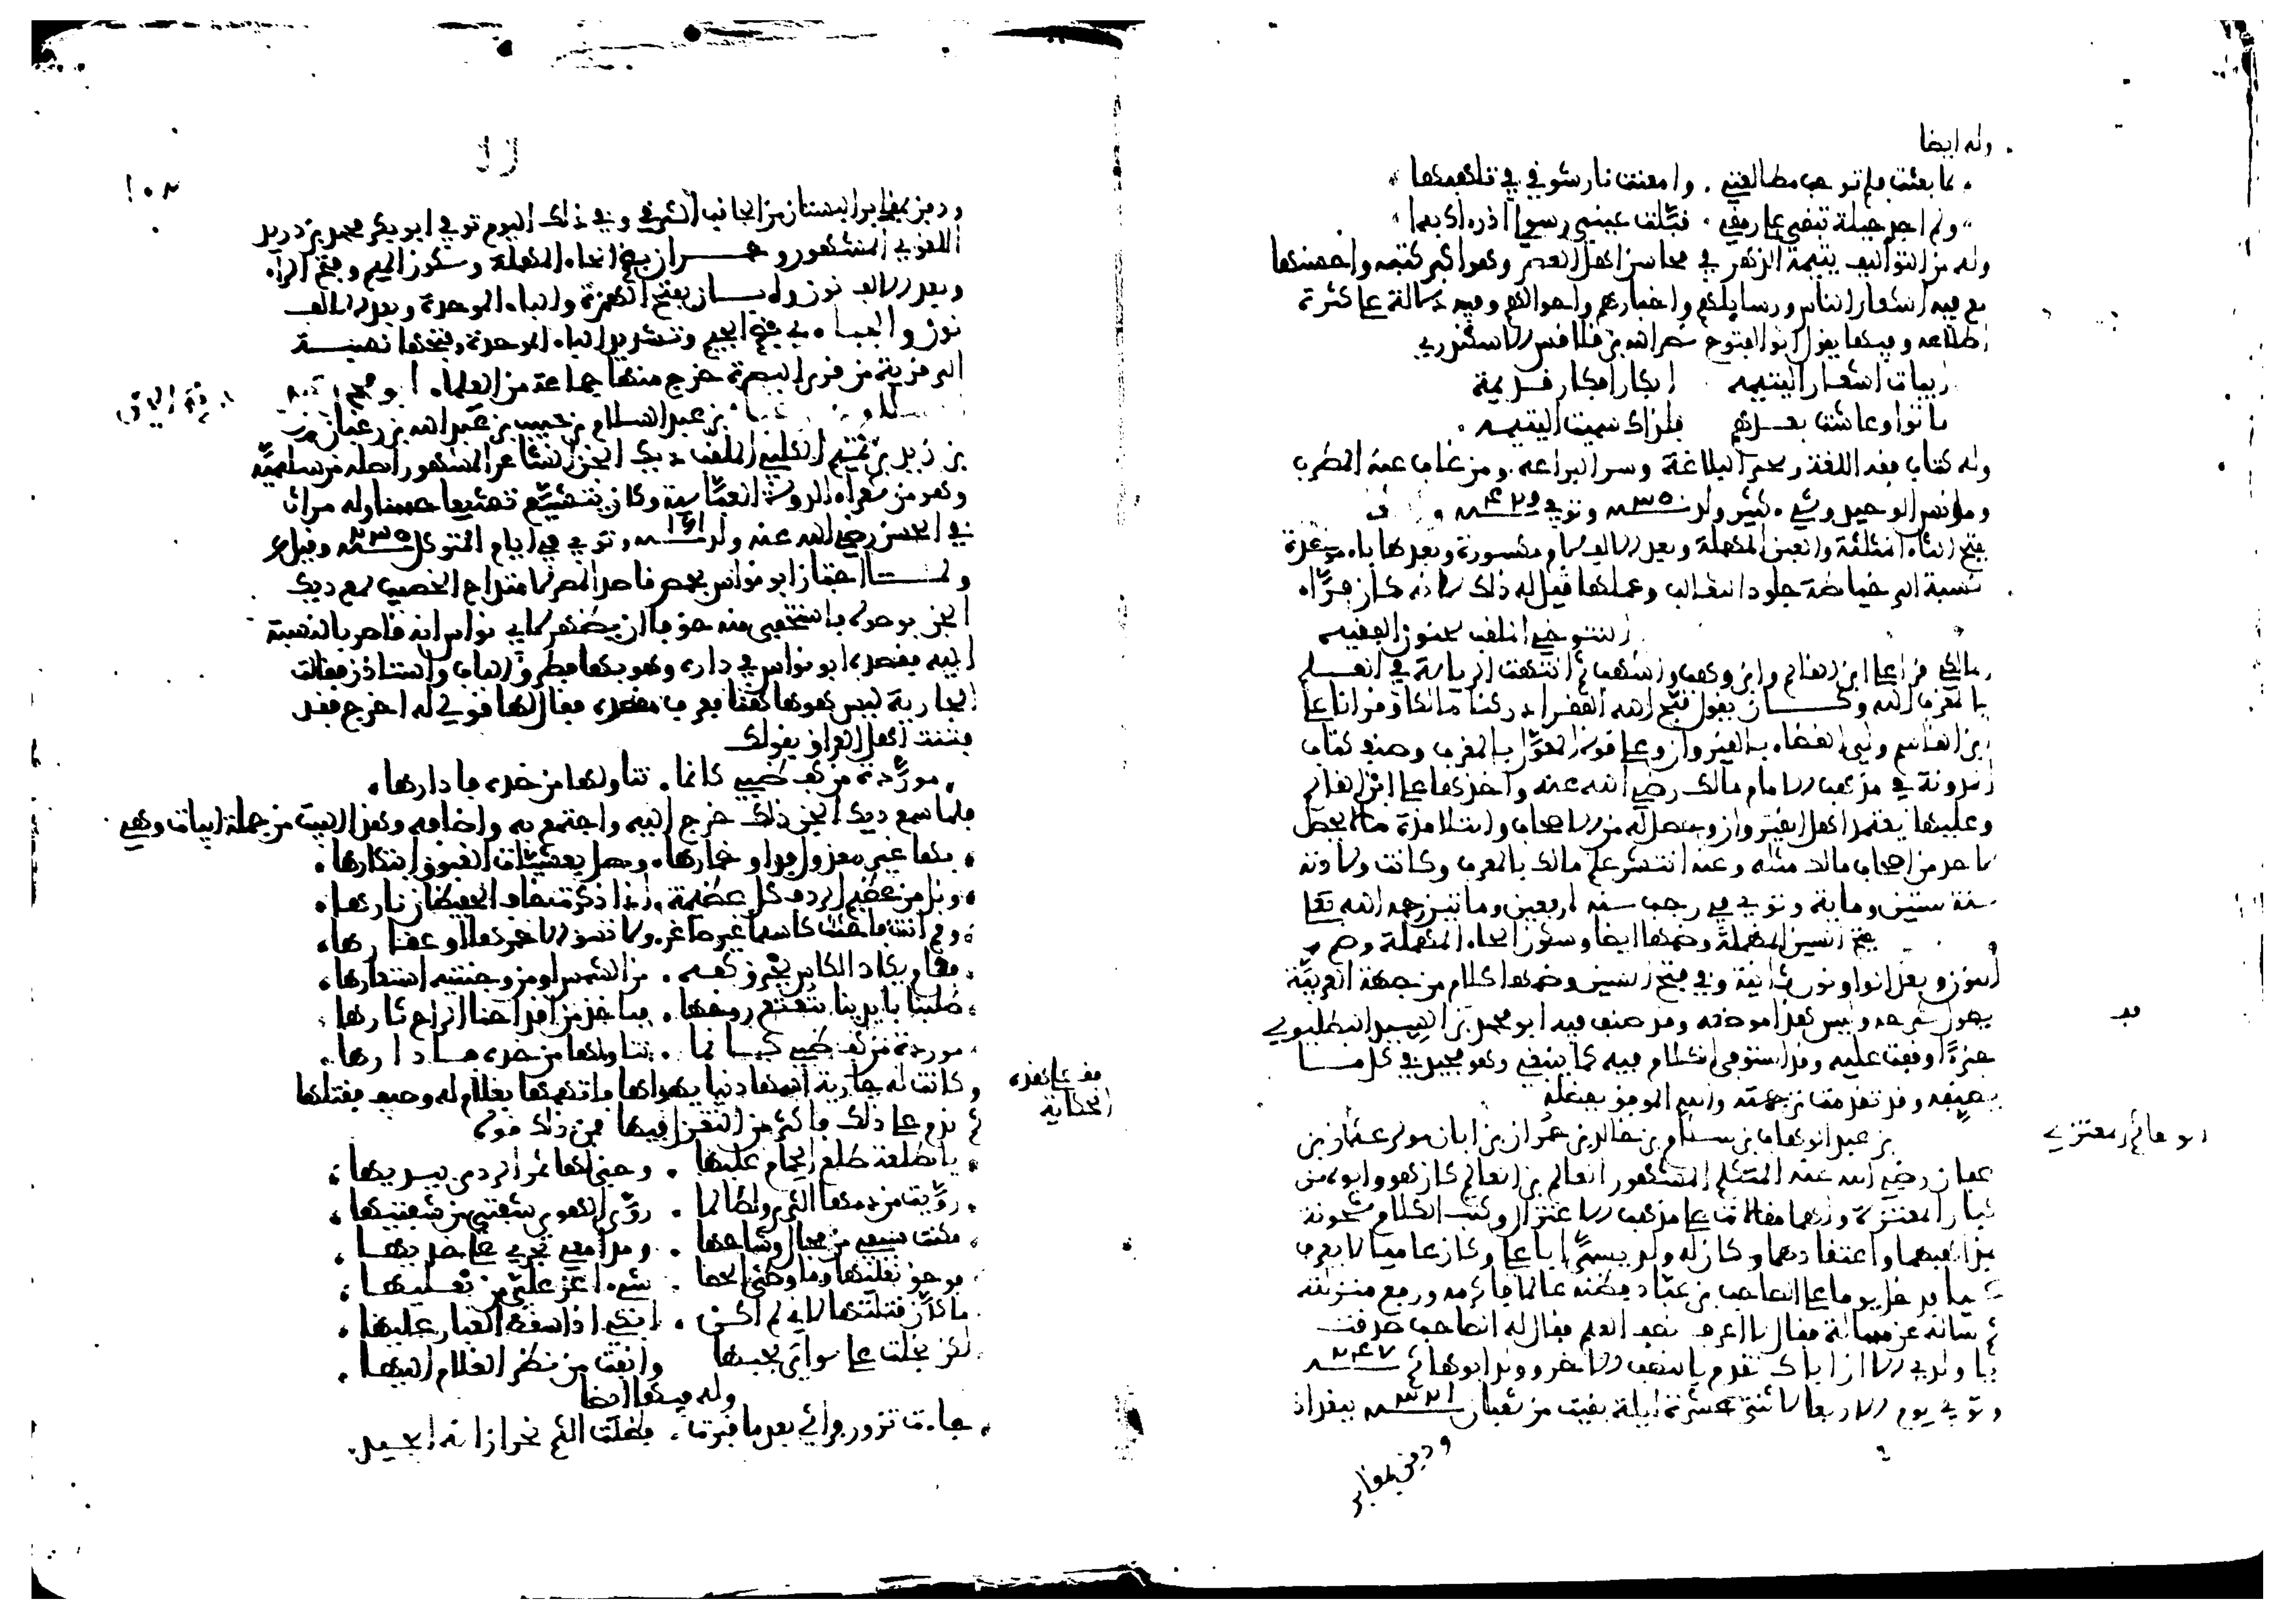 وله ايضا
لما بعثت فلم توجب مطالعتي . وامعنت نار شوقي في تلهبها
ولم اجد حيلة تبقي على رمقي . قبلت عيني رسولي اذ رءاك بها
وله من التواليف يتيمة الدهر في محاسن اهل العصر وهو اكبر كتبه واحسنها
جمع فيه اشعار الناس ورسايلهم واخبارهم واحوالهم وفيه دلالة على كثرة
اطلاعه وفيها يقول ابو الفتوح نصر الله بن قلاقس الاسكندري
ابيات اشعار اليتيمه ابكار افكار قديمة
ماتوا وعاشت بعدهم فلذاك سميت اليتيمه .
وله كتاب فقه اللغة وسحر البلاغة وسر البراعه . ومن غاب عنه المطرب
ومؤنس الوحيد وشيء كثير ولد سنة ٣٥٠ وتوفي سنة ٤٢٩
بفتح الثاء المثلثة والعين المهملة وبعد الالف لام مكسورة وبعدها باء موحدة
نسبة الى خياطة جلود الثعالب وعملها قيل له ذلك لانه كان فرّاء
التنوخي الملقب سحنون الفقيه
المالكي قرا على ابن القاسم وابن وهب واشهب ثم انتهت الرياسة في العلم
بالمغرب اليه وكان يقول قبح الله الفقر ادركنا مالكا وقرانا على
ابن القاسم ولي القضاء بالقيروان وعلى قوله المعوّل بالمغرب وصنف كتاب
المدونة في مذهب الامام مالك رضي الله عنه واخذها على ابن القاسم
وعليها يعتمد اهل القيروان وحصل له من الاصحاب والتلامذة ما لا يحصل
لاحد من اصحاب مالك مثله وعنه انتشر علم مالك بالمغرب وكانت ولادته
سنة ستين وماية وتوفي في رجب سنه اربعين وماتين رحمه الله تعلى
بفتح السين المهملة وضمها ايضا وسكون الحاء المهملة وضم
النون وبعد الواو نون ثانية وفي فتح السين وضمها كلام من جهة العربيّة
يطول شرحه وليس هذا موضعه وقد صنف فيه ابو محمد بن السيد البطليوسي
جزءًا وقفت عليه وقد استوفى الكلام فيه كما ينبغي وهو مجيد في كل ما
يصنفه وقد تقدمت ترجمته والله الموفق بفضله
ابو هاشم المعتزلي
بن عبد الوهاب بن سلام بن خالد بن حمران بن ابان مولى عثمان بن
عفان رضي الله عنه المتكلم المشهور العالم بن العالم كان هو وابوه من
كبار المعتزلة ولهما مقالات على مذهب الاعتزال وكتب الكلام مشحونة
بمذاهبهما واعتقادهما وكان له ولد يسمّى ابا علي وكان عاميا لا يعرف
شيا فدخل يوما على الصاحب بن عبّاد فظنه عالما فاكرمه ورفع منزلته
ثم ساله عن مسالة فقال لا اعرف نصف العلم فقال له الصاحب صدقت
يا ولدي الا ان اباك تقدم بالنصف الاخر وولد ابو هاشم سنة ٢٤٧
وتوفي يوم الاربعا لاثنتي عشرة ليلة بقيت من شعبان سنة ٣٢١ ببغداد
ودفن بمقابر
ودفن بمقابر البستان من الجانب الشرقي وفي ذلك اليوم توفي ابو بكر محمد بن دريد
اللغوي المشهور وحمران بضم الحاء المهملة وسكون الميم وفتح الراء
وبعد الالف نون وابان بفتح الهمزة والباء الموحدة وبعد الالف
نون والجباءي بضم الجيم وتشديد الباء الموحدة وفتحها نسبة
الى قرية من قرى البصرة خرج منها جماعة من العلماء ابو محمد
بن عبد السلام بن حبيب بن عبد الله بن رغبان بن
بن زيد بن تميم الكلبي الملقب ديك الجن الشاعر المشهور اصله من سلميّة
وهو من شعراء الدولة العبّاسية وكان يتشيّع تشيعا حسنا وله مراث
في الحسين رضي الله عنه ولد سنة ١٦١ وتوفي في ايام المتوكل سنة ٢٣٥ وقيل
ولما اجتاز ابو نواس بحمص قاصدا لمصر لامتداح الخصيب سمع ديك
الجن بوصوله فاستخفى منه خوفا ان يظهر لابي نواس انه قاصر بالنسبة
اليه فقصده ابو نواس في داره وهو بها فطرق الباب واستاذن فقالت
الجارية ليس هو ها هنا فعرف مقصده فقال لها قولي له اخرج فقد
فتنت اهل العراق بقولك
مورّدة من كف ظبي كانما . تناولها من خده فادارها
فلما سمع ديك الجن ذلك خرج اليه واجتمع به واضافه وهذا البيت من جملة ابيات وهي
بها غير معذول فداو خمارها . وصل بعشيّات الغبوق ابتكارها
ونل من عظيم الردف كل عظيمة . اذا ذكرت خاف الحفيظان نارها
وقم انت فاحثث كاسها غير صاغر . ولا تسق الا خمرها او عقارها
فقام يكاد الكاس يحرق كفه . من الشمس او من وجنتيه استعارها
ظللنا بايدينا نتعتع روحها . فتاخذ من اقدامنا الراح ثارها
موردة من كف ظبي كانما . تناولها من خده فادارها
وكانت له جارية اسمها دنيا يهواها فاتهمها بغلام له وصيف فقتلها
قف على هذه
الحكاية
ثم ندم على ذلك فاكثر من التغزل فيها فمن ذلك قوله
يا طلعة طلع الحمام عليها . وجنى لها ثمر الردى بيديها
روّيت من دمها الثرى ولطالما . روّى الهوى شفتي من شفتيها
مكنت سيفي من مجال وشاحها . ومدامعي تجري على خديها
فوحق نعليها وما وطئ الحصا . شيء اعز علي من نعليها
ما كان قتلتها لاني لم اكن . ابكي اذا سقط الغبار عليها
لكن بخلت على سواي بحسنها وانفت من نظر الغلام اليها
وله فيها ايضا
جاءت تزور فراشي بعد ما قبرت . فظلت الثم نحرا زانه الجيد